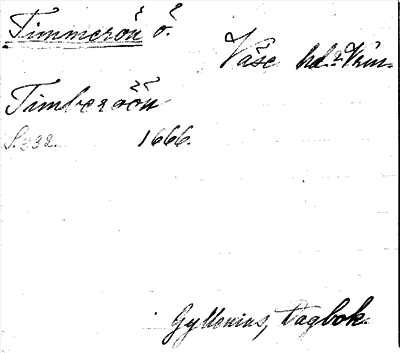 Timmerön ö.
Väse hd. Vrm.
Timberöön
S. 232. 1666.
Gyllenius, Dagbok.